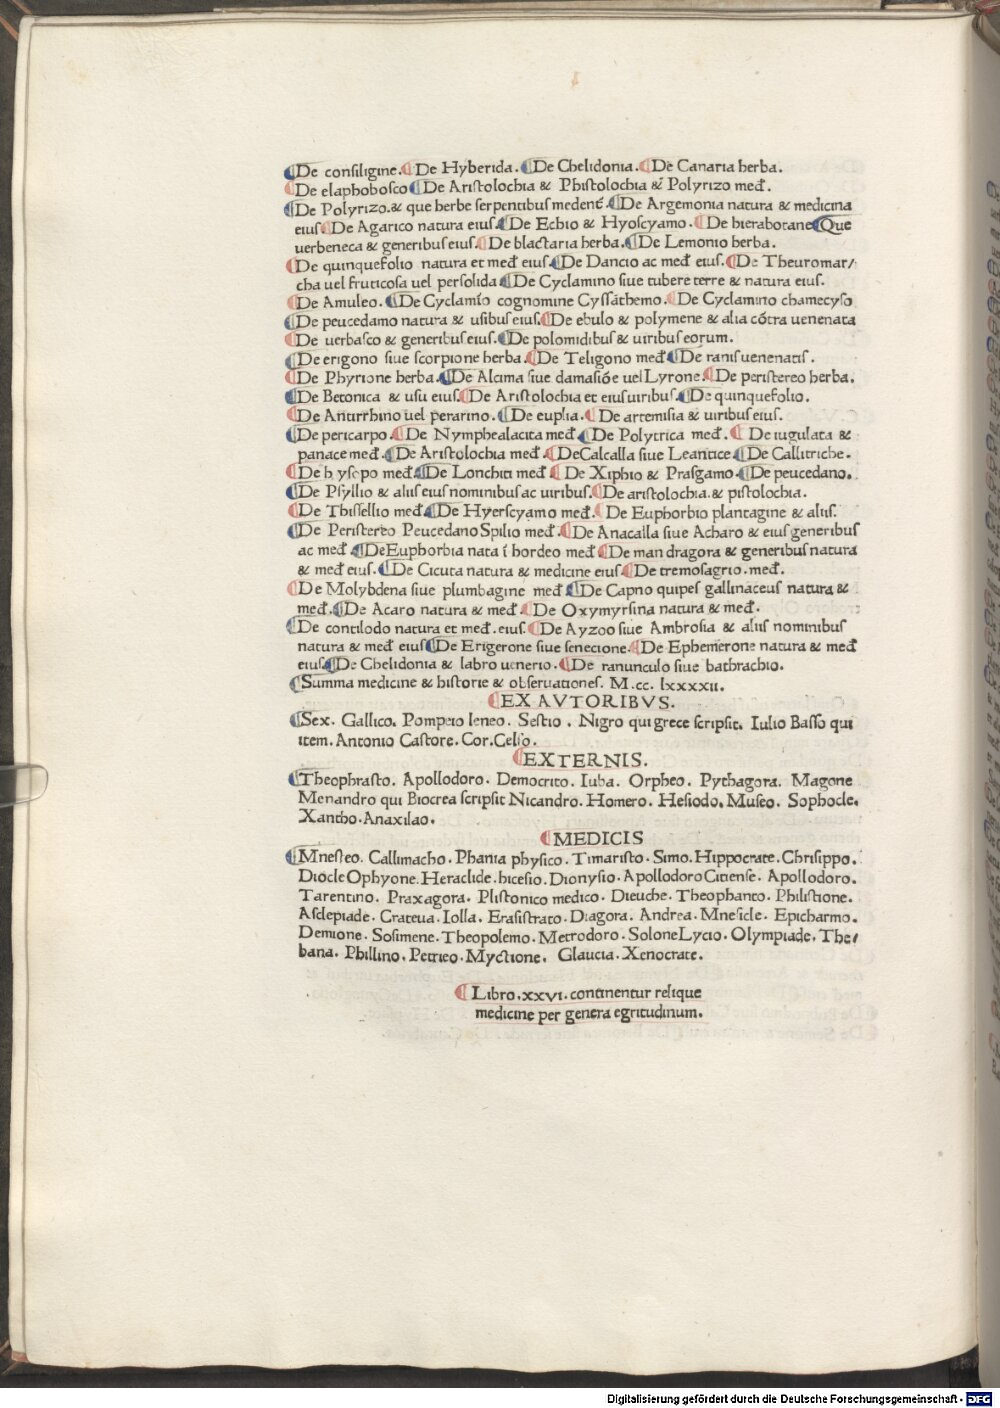 ¶De consiligine.¶De Hyberida.¶De Chelidonia.¶De Canaria herba.
¶De elaphobosco¶De Aristolochia & Phistolochia & Polyrizo med̃.
¶De Polyrizo.& que herbe serpentibus medent̃.¶De Argemonia natura & medicina
eius¶De Agarico natura eius¶De Echio & Hyoscyamo.¶De hierabotane¶Que
uerbeneca & generibus eius.¶De blactaria herba.¶De Lemonio herba.
¶De quinquefolio natura et med̃ eius¶De Dancio ac med̃ eius.¶De Theuromar/
cha uel fruticosa uel persolida¶De Cyclamino siue tubere terre & natura eius.
¶De Amuleo.¶De Cyclamĩo cognomine Cyssãthemo.¶De Cyclamino chamecyso
¶De peucedamo natura & usibus eius.¶De ebulo & polymene & alia cõtra uenenata
¶De uerbasco & generibus eius.¶De polomidibus & uiribus eorum.
¶De erigono siue scorpione herba.¶De Teligono med̃¶De ranis uenenatis.
¶De Phyrione herba.¶De Alcima siue damasiõe uel Lyrone.¶De peristereo herba.
¶De Betonica & usu eius.¶De Aristolochia et eius uiribus.¶De quinquefolio.
¶De Antirrhino uel perarino.¶De euplia.¶De artemisia & uiribus eius.
¶De pericarpo.¶De Nymphealacita med̃¶De Polytrica med̃.¶De iugulata &
panace med̃.¶De Aristolochia med̃.¶De Calcalla siue Leantice¶De Callitriche.
¶De hysopo med̃¶De Lonchiti med̃¶De Xiphio & Prasgamo.¶De peucedano.
¶De Psyllio & aliis eius nominibus ac uiribus.¶De aristolochia.& pistolochia.
¶De Thissellio med̃¶De Hyerscyamo med̃.¶De Euphorbio plantagine & aliis.
¶De Peristereo Peucedano Spilio med̃.¶De Anacalla siue Acharo & eius generibus
ac med̃¶De Euphorbia nata ĩ hordeo med̃¶De mandragora & generibus natura
& med̃ eius.¶De Cicuta natura & medicine eius¶De tremosagrio.med̃.
¶De Molybdena siue plumbagine med̃¶De Capno quipes gallinaceus natura &
med̃.¶De Acaro natura & med̃¶De Oxymyrsina natura & med̃.
¶De contilodo natura et med̃.eius.¶De Ayzoo siue Ambrosia & aliis nominibus
natura & med̃ eius¶De Erigerone siue senecione.¶De Ephemerone natura & med̃
eius¶De Chelidonia & labro uenerio.¶De ranunculo siue bathrachio.
¶Summa medicine & historie & obseruationes. M.cc. lxxxxii.
¶EX AVTORIBVS.
¶Sex. Gallico. Pompeio leneo. Sestio. Nigro qui grece scripsit. Iulio Basso qui
item. Antonio Castore. Cor.Celso.
¶EXTERNIS.
¶Theophrasto. Apollodoro. Democrito. Iuba. Orpheo. Pythagora. Magone
Menandro qui Biocrea scripsit Nicandro. Homero. Hesiodo. Museo. Sophocle.
Xantho.Anaxilao.
¶MEDICIS
¶Mnesteo. Callimacho. Phania physico. Timaristo. Simo. Hippocrate. Chrisippo.
Diocle Ophyone. Heraclide. hicesio. Dionysio. Apollodoro Citiense. Apollodoro.
Tarentino. Praxagora. Plistonico medico. Dieuche. Theophanto. Philistione.
Asclepiade. Crateua. Iolla. Erasistrato. Diagora. Andrea. Mnesicle. Epicharmo.
Demione. Sosimene. Theopolemo. Metrodoro. Solone Lycio. Olympiade. The/
bana. Phillino. Petrico. Myctione. Glaucia. Xenocrate.
¶Libro.xxvi.continentur relique
medicine per genera egritudinum.
Digitalisierung gefördert durch die Deutsche Forschungsgemeinschaft - DFG